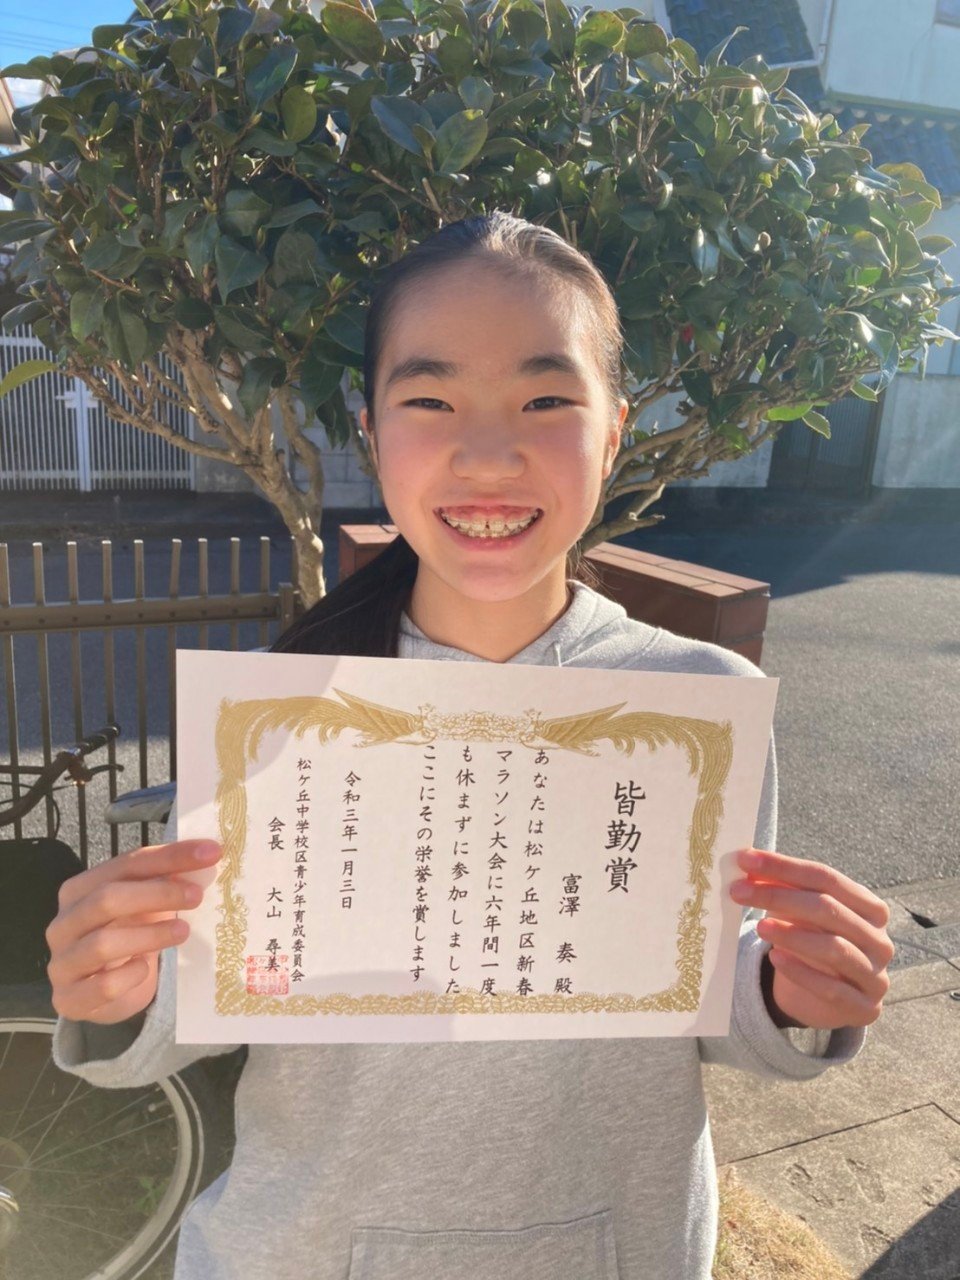 皆勤賞
富澤 奏 殿
あなたは松ケ丘地区新春
マラソン大会に六年間一度
も休まずに参加しました
ここにその栄誉を賞します
令和三年一月三日
松ケ丘中学校区青少年育成委員会
会長 大山 尋美